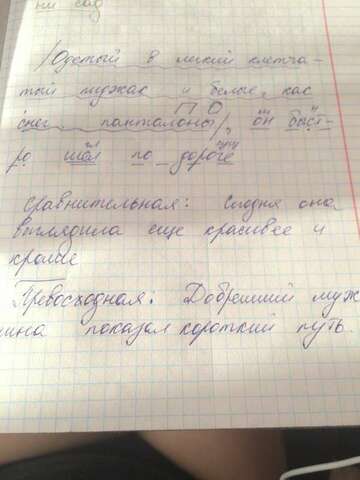 ый сад
Одетый в легкий клетча-
тый пиджак и белые, как
ПО
снег панталоны, он быст-
ро шёл по дороге
Сравнительная: Сегодня она
выглядила еще красивее и
Превосходная: Добрейший муж
чина показал короткий путь